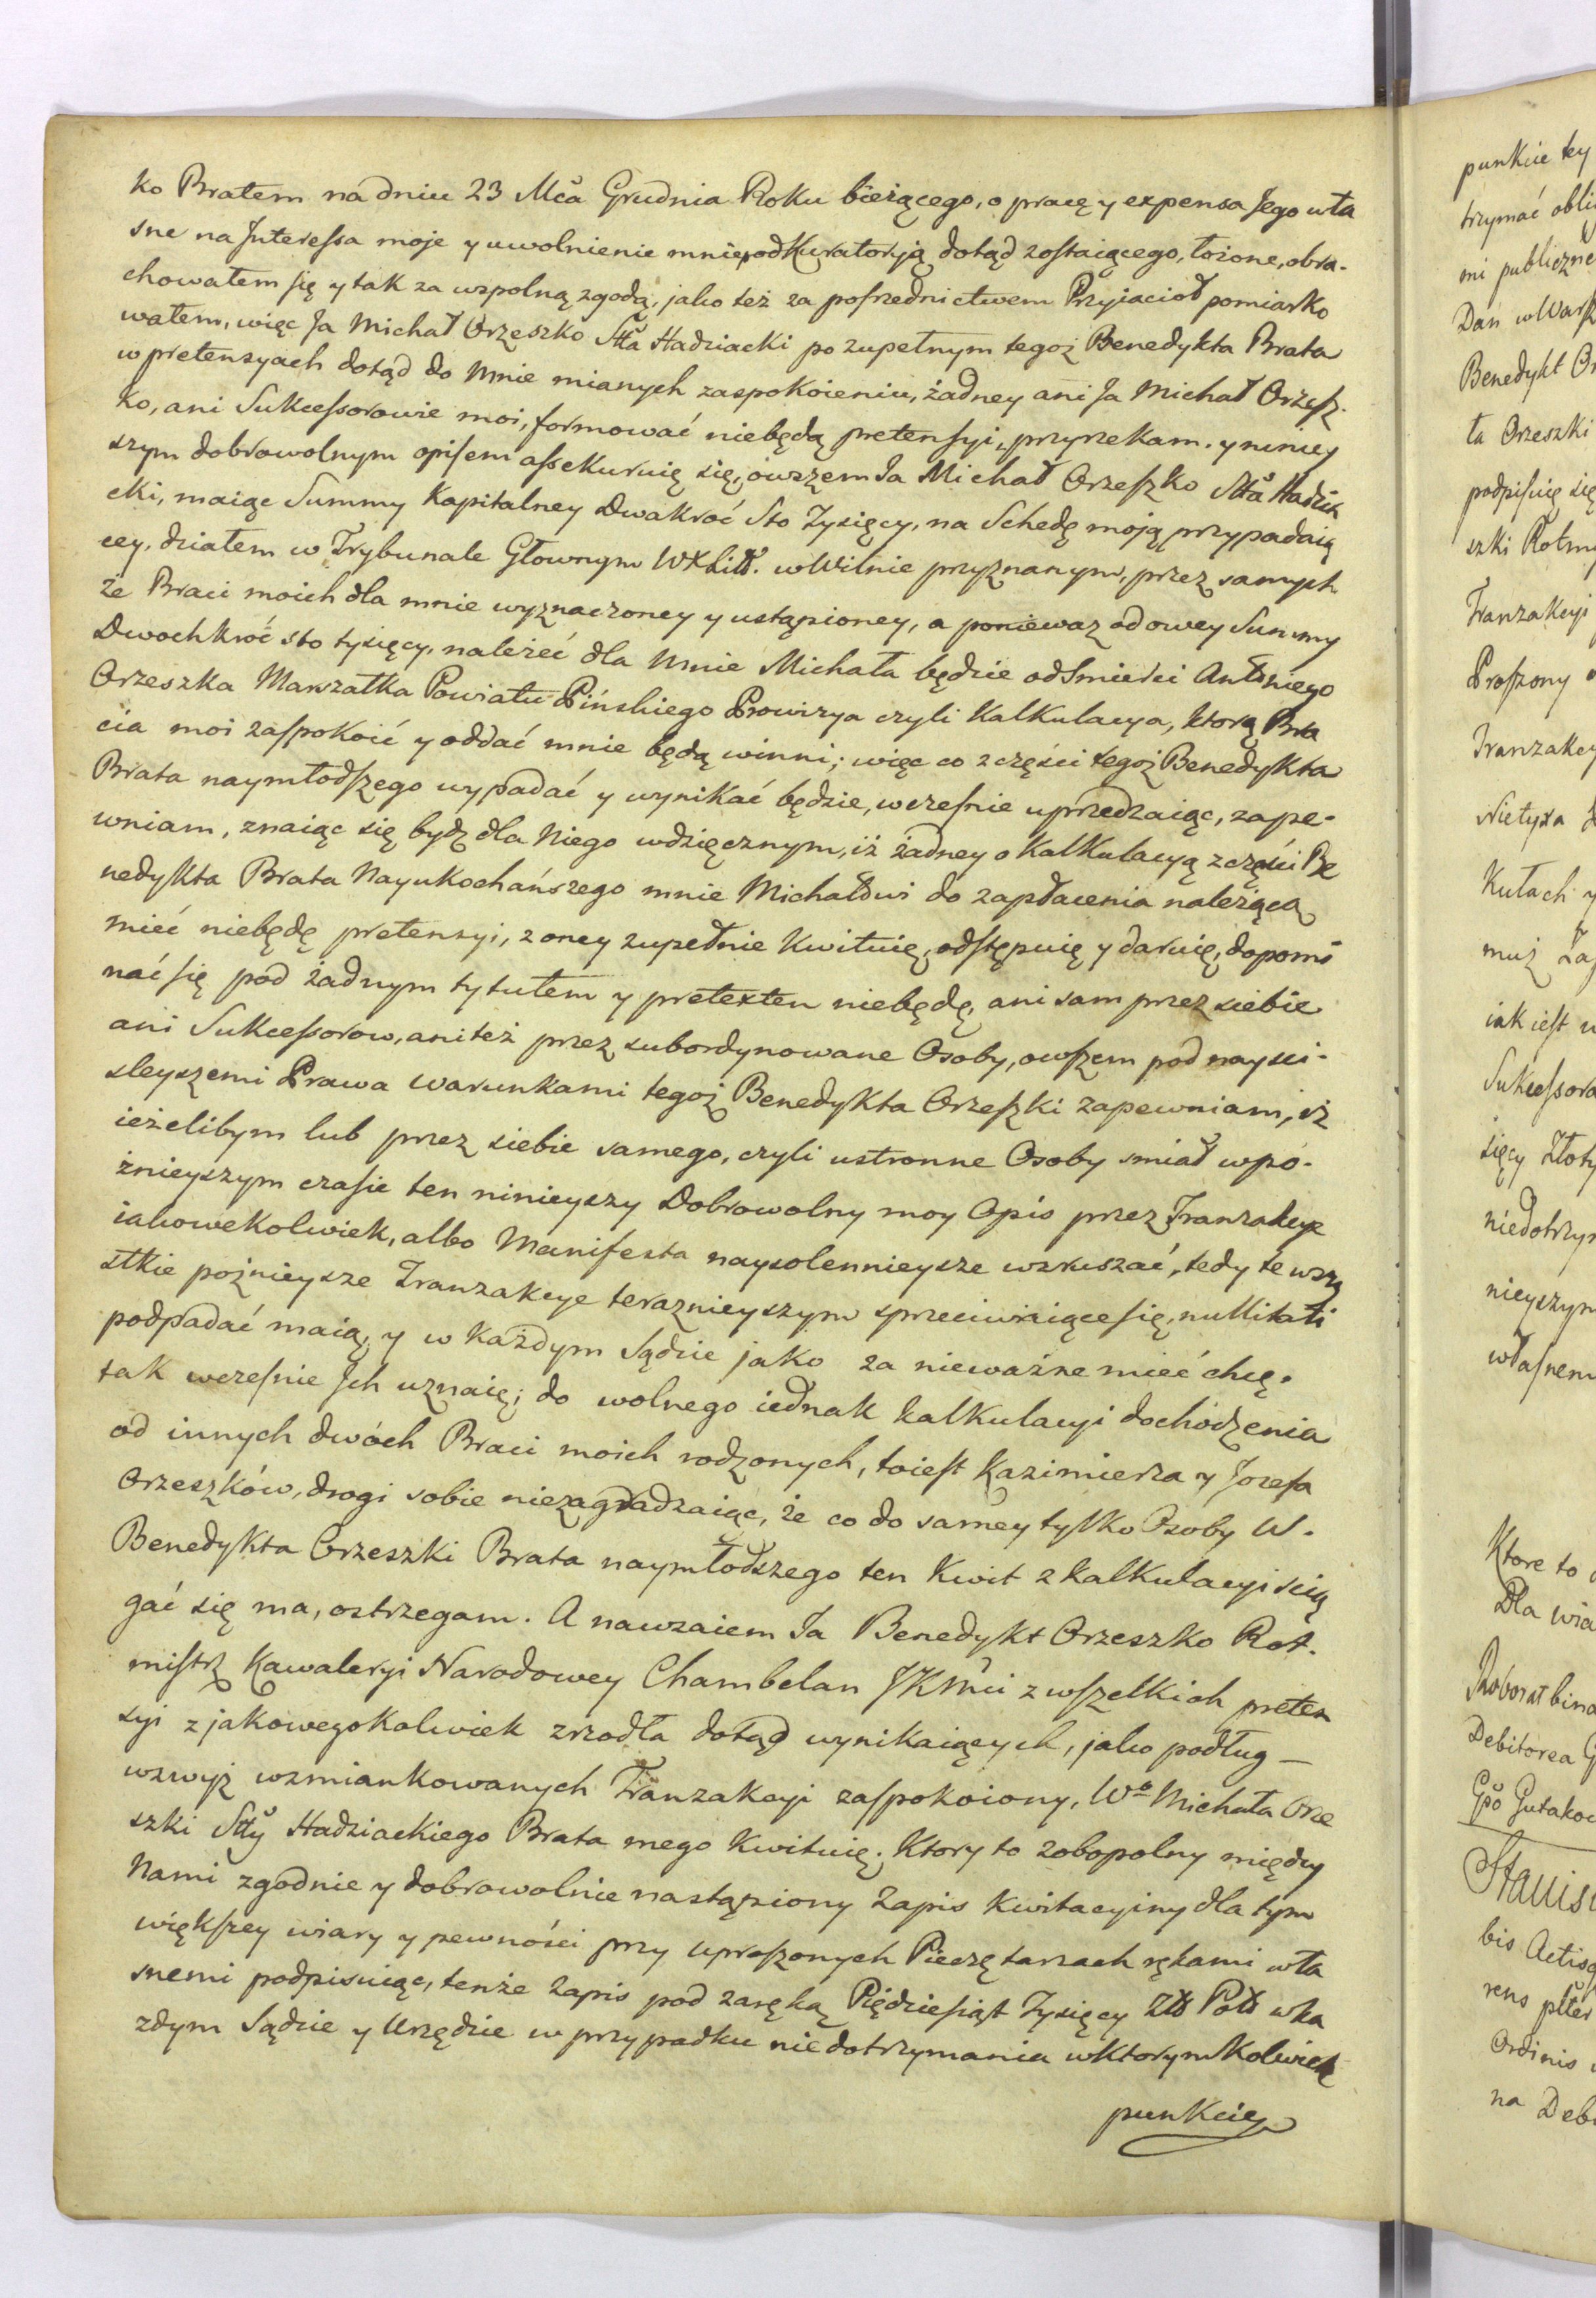 ko Bratem na dniu 23 Mča Grudnia Roku bieżącego, o pracę y expensa Jego wła
sne na Interessa moje y uwolnienie mnie pod Kuratoryą dotąd zostaiącego, łożone, obra-
chowałem się y tak za wspolną zgodą, jako też za posrzednictwem Przyiacioł pomiarko
wałem, więc Ja Michał Orzeszko Stta Hadziacki po zupełnym tegoż Benedykta Brata
w pretensyach dotąd do mnie mianych zaspokoieniu, żadney ani Ja Michał Orzesz-
ko, ani Sukcessorowie moi, formować niebędą pretensyi, przyrzekam. y niniey
szym dobrowolnym opisem assekuruię się, owszem Ja Michał Orzeszko Stta Hadzia
cki, maiąc Summy Kapitalney Dwakroć Sto Tysięcy, na Schedę moją przypadaią
cey, działem w Trybunale Głownym WXLitt. w Wilnie przyznanym, przez samych
że Braci moich dla mnie wyznaczoney y ustąpioney, a ponieważ od owey Summy
Dwochkroć sto tysięcy, należeć dla mnie Michała będzie od Smierci Antoniego
Orzeszka Marszałka Powiatu Pińskiego Prowizya czyli Kalkulacya, ktorą Bra
cia moi zaspokoić y oddać mnie będą winni; więc co z części tegoż Benedykta
Brata naymłodszego wypadać y wynikać będzie, wczesnie uprzedzaiąc, zape-
wniam, znaiąc się bydź dla Niego wdzięcznym, iż żadney o Kalkulacyą z części Be
nedykta Brata Nayukochańszego mnie Michałowi do zapłacenia należącą
mieć niebędę pretensyi, z oney zupełnie Kwituię, odstępuię y daruię, dopomi
nać się pod żadnym tytułem y pretexten niebędę, ani sam przez siebie
ani Sukcessorow, ani też przez subordynowane Osoby, owszem pod naysci-
sleyszemi Prawa warunkami tegoż Benedykta Orzeszki zapewniam, iż
ieżelibym lub przez siebie samego, czyli ustronne Osoby smiał w pó-
znieyszym czasie ten ninieyszy Dobrowolny moy Opis przez Tranzakcye
iakowekolwiek, albo Manifesta naysolennieysze wzruszać, tedy te wszy
stkie poźnieysze Tranzakcye teraznieyszym sprzeciwiaiące się, nullitati
podpadać maią, y w każdym Sądzie jako za nieważne mieć chcę.
tak wczesnie Ich uznaię; do wolnego iednak kalkulacyi dochodzenia
od innych dwóch Braci moich rodzonych, toiest Kazimierza y Jozefa
Orzeszków, drogi sobie niezagradzaiąc, że co do samey tylko Osoby W.
Benedykta Orzeszki Brata naymłodszego ten Kwit z kalkulacyi scią
gać się ma, ostrzegam. A nawzaiem Ja Benedykt Orzeszko Rot-
mistrz Kawaleryi Narodowey Chambelan JKMci z wszelkich preten
syi z jakowegokolwiek zrzodła dotąd wynikaiących, jako podług
wzwyż wzmiankowanych Tranzakcyi zaspokoiony, Wo Michała Orze
szki Stty Hadziackiego Brata mego Kwituię. Ktory to zobopolny między
Nami zgodnie y dobrowolnie nastąpiony Zapis Kwitacyiny dla tym
większey wiary y pewności przy uproszonych Pieczętarzach rękami wła
snemi podpisuiąc, tenże Zapis pod zaręką Pięćdziesiąt Tysięcy Zło Polo w ka
żdym Sądzie y Urzędzie w przypadku niedotrzymania w ktorymkolwiek
punkcie
punkcie tey
trzymać obli
mi publiczne
Dan w Warsz
Benedykt Or
ła Orzeszki
podpisuię się
szki Rotm
Tranzakcyi
Proszony
Tranzakcy
Kułach y
iak iest
Sukcessoro
sięcy Złoty
niedotrzym
nieyszym
własnem
Ktore to
Dla wia
Debitorea
Stanis
bis Actis
Ordinis
na Deb